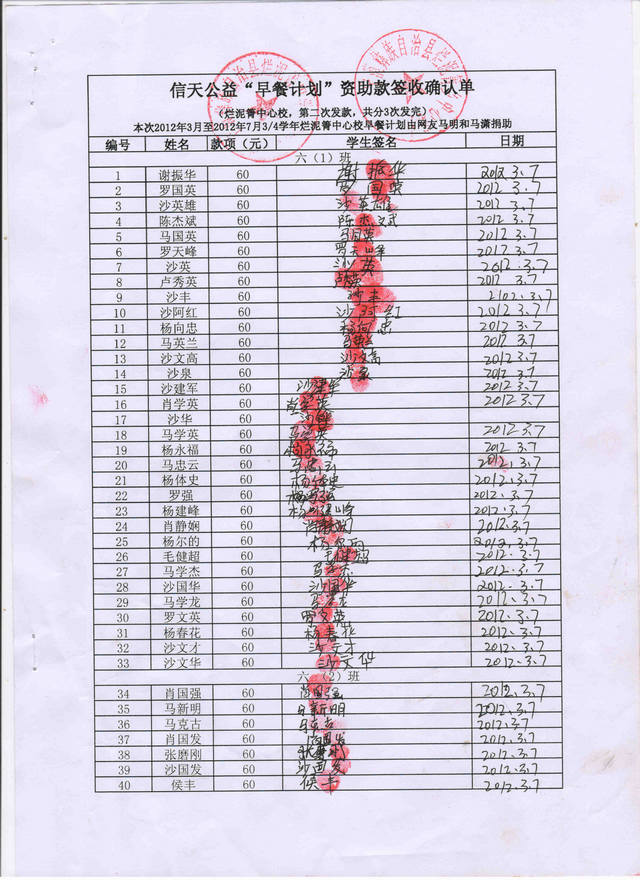 信天公益“早餐计划”资助款签收确认单
(烂泥箐中心校，第二次发款，共分3次发完)
本次2012年3月至2012年7月3/4学年烂泥箐中心校早餐计划由网友马明和马潇捐助
编号 姓名 款项（元） 学生签名 日期
六（1）班
1 谢振华 60 谢振华 2012.3.7
2 罗国英 60 罗国英 2012.3.7
3 沙英雄 60 沙英雄 2012.3.7
4 陈杰斌 60 陈杰斌 2012.3.7
5 马国英 60 马国英 2012.3.7
6 罗天峰 60 罗天峰 2012.3.7
7 沙英 60 沙英 2012.3.7
8 卢秀英 60 2012 3.7
9 沙丰 60 沙丰 2102.3.7
10 沙阿红 60 沙阿红 2012.3.7
11 杨向忠 60 杨向忠 2012.3.7
12 马英兰 60 马英兰 2012.3.7
13 沙文高 60 沙文高 2012.3.7
14 沙泉 60 沙泉 2012.3.7
15 沙建军 60 沙建军 2012.3.7
16 肖学英 60 肖学英 2012.3.7
17 沙华 60 沙华
18 马学英 60 马学英 2012.3.7
19 杨永福 60 杨永福 2012 3.7
20 马忠云 60 马忠云 2012.3.7
21 杨体史 60 杨体史 2012.3.7
22 罗强 60 2012.3.7
23 杨建峰 60 杨建峰 2012.3.7
24 肖静娴 60 肖静娴 2012.3.7
25 杨尔的 60 2012.3.7
26 毛健超 60 毛健超 2012.3.7
27 马学杰 60 马学杰 2012.3.7
28 沙国华 60 沙国华 2012.3.7
29 马学龙 60 马学龙 2012.3.7
30 罗文英 60 罗文英 2012.3.7
31 杨春花 60 杨春花 2012.3.7
32 沙文才 60 沙文才 2012.3.7
33 沙文华 60 沙文华 2012.3.7
六（2）班
34 肖国强 60 肖国强 2012.3.7
35 马新明 60 马新明 2012.3.7
36 马克古 60 马克古 2012.3.7
37 肖国发 60 肖国发 2012.3.7
38 张磨刚 60 2012.3.7
39 沙国发 60 沙国发 2012.3.7
40 侯丰 60 侯丰 2012.3.7